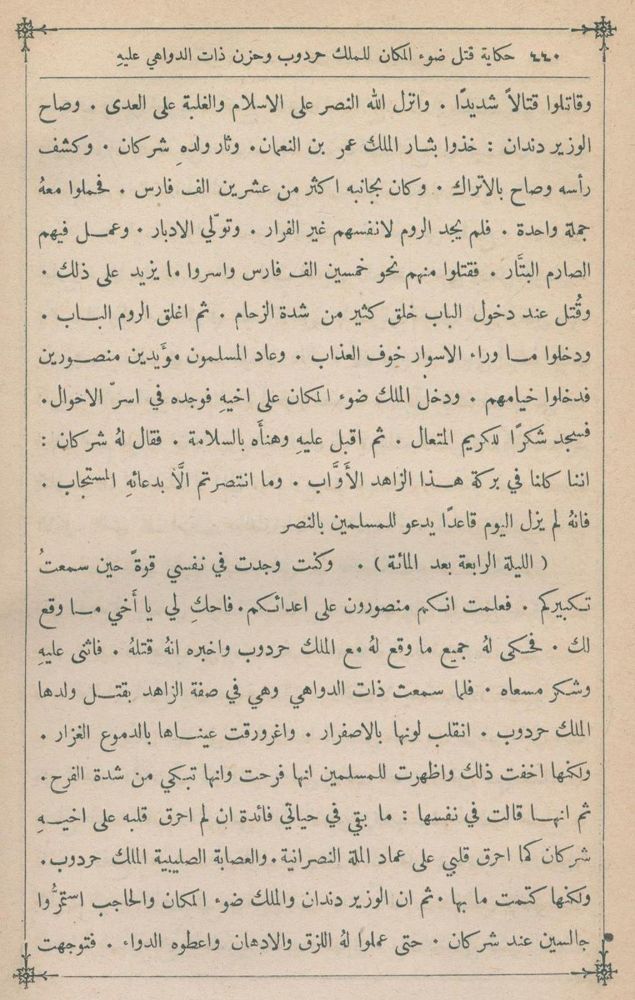 ٤٤٠ حكاية قتل ضوء المكان للملك حردوب وحزن ذات الدواهي عليهِ
وقاتلوا قتالاً شديدًا . وانزل الله النصر على الاسلام والغلبة على العدى . وصاح
الوزير دندان : خذوا بثار الملك عمر بن النعمان . وثار ولدهِ شركان . وكشف
رأسه وصاح بالاتراك . وكان بجانبه اكثر من عشرين الف فارس . فحملوا معهُ
حملة واحدة . فلم يجد الروم لانفسهم غير الفرار . وتولّي الادبار . وعمل فيهم
الصارم البتَّار . فقتلوا منهم نحو خمسين الف فارس واسروا ما يزيد على ذلك .
وقُتل عند دخول الباب خلق كثير من شدة الزحام . ثم اغلق الروم الباب .
ودخلوا ما وراء الاسوار خوف العذاب . وعاد المسلمون مؤَيدين منصورين
فدخلوا خيامهم . ودخل الملك ضوء المكان على اخيهِ فوجده في اسرّ الاحوال .
فسجد شكرًا للكريم المتعال . ثم اقبل عليهِ وهنأَه بالسلامة . فقال لهُ شركان :
اننا كلنا في بركة هذا الزاهد الأَوَّاب . وما انتصرتم الَّا بدعائهِ المستجاب .
فانهُ لم يزل اليوم قاعدًا يدعو للمسلمين بالنصر
( الليلة الرابعة بعد المائة ) . وكنت وجدت في نفسي قوةً حين سمعتُ
تكبيركم . فعلمت انكم منصورون على اعدائكم . فاحكِ لي يا أَخي ما وقع
لك . فحكى لهُ جميع ما وقع لهُ مع الملك حردوب واخبره انهُ قتلهُ . فاثنى عليهِ
وشكر مسعاه . فلما سمعت ذات الدواهي وهي في صفة الزاهد بقتل ولدها
الملك حردوب . انقلب لونها بالاصفرار . واغرورقت عيناها بالدموع الغزار .
ولكنها اخفت ذلك واظهرت للمسلمين انها فرحت وانها تبكي من شدة الفرح .
ثم انها قالت في نفسها : ما بقي في حياتي فائدة ان لم احرق قلبه على اخيهِ
شركان كما احرق قلبي على عماد الملة النصرانية . والعصابة الصليبية الملك حردوب .
ولكنها كتمت ما بها . ثم ان الوزير دندان والملك ضوء المكان والحاجب استمرُّوا
جالسين عند شركان . حتى عملوا لهُ اللزق والادهان واعطوه الدواء . فتوجهت